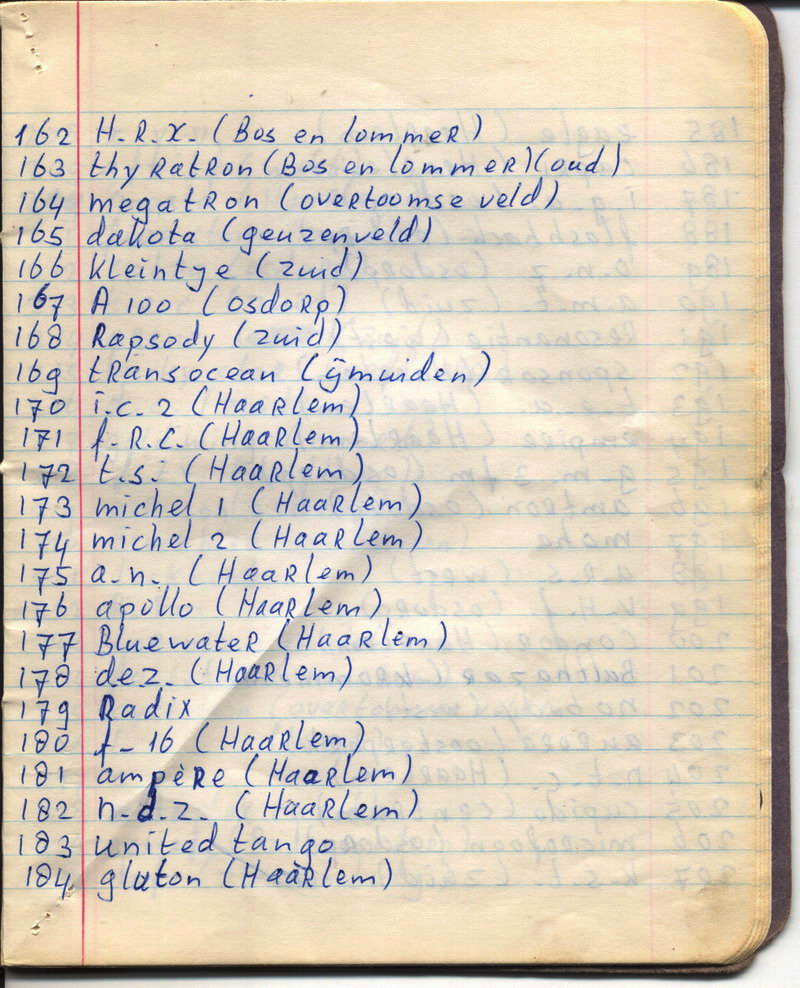 162 H.R.X. (Bos en lommeR)
163 thyRatRon (Bos en lommeR) (oud)
164 megatRon (oveRtoomse veld)
165 dakota (geuzenveld)
166 kleintye (zuid)
167 A 100 (osdoRp)
168 Rapsody (zuid)
169 tRansocean (ijmuiden)
170 i.c. 2 (HaaRlem)
171 f.R.C. (HaaRlem)
172 t.s. (HaaRlem)
173 michel 1 (HaaRlem)
174 michel 2 (HaaRlem)
175 a.n. (HaaRlem)
176 apollo (HaaRlem)
177 BluewateR (HaaRlem)
178 dez. (HaaRlem)
179 Radix
180 f-16 (HaaRlem)
181 ampèRe (HaaRlem)
182 n.d.z. (HaaRlem)
183 united tango
184 gluton (HaaRlem)